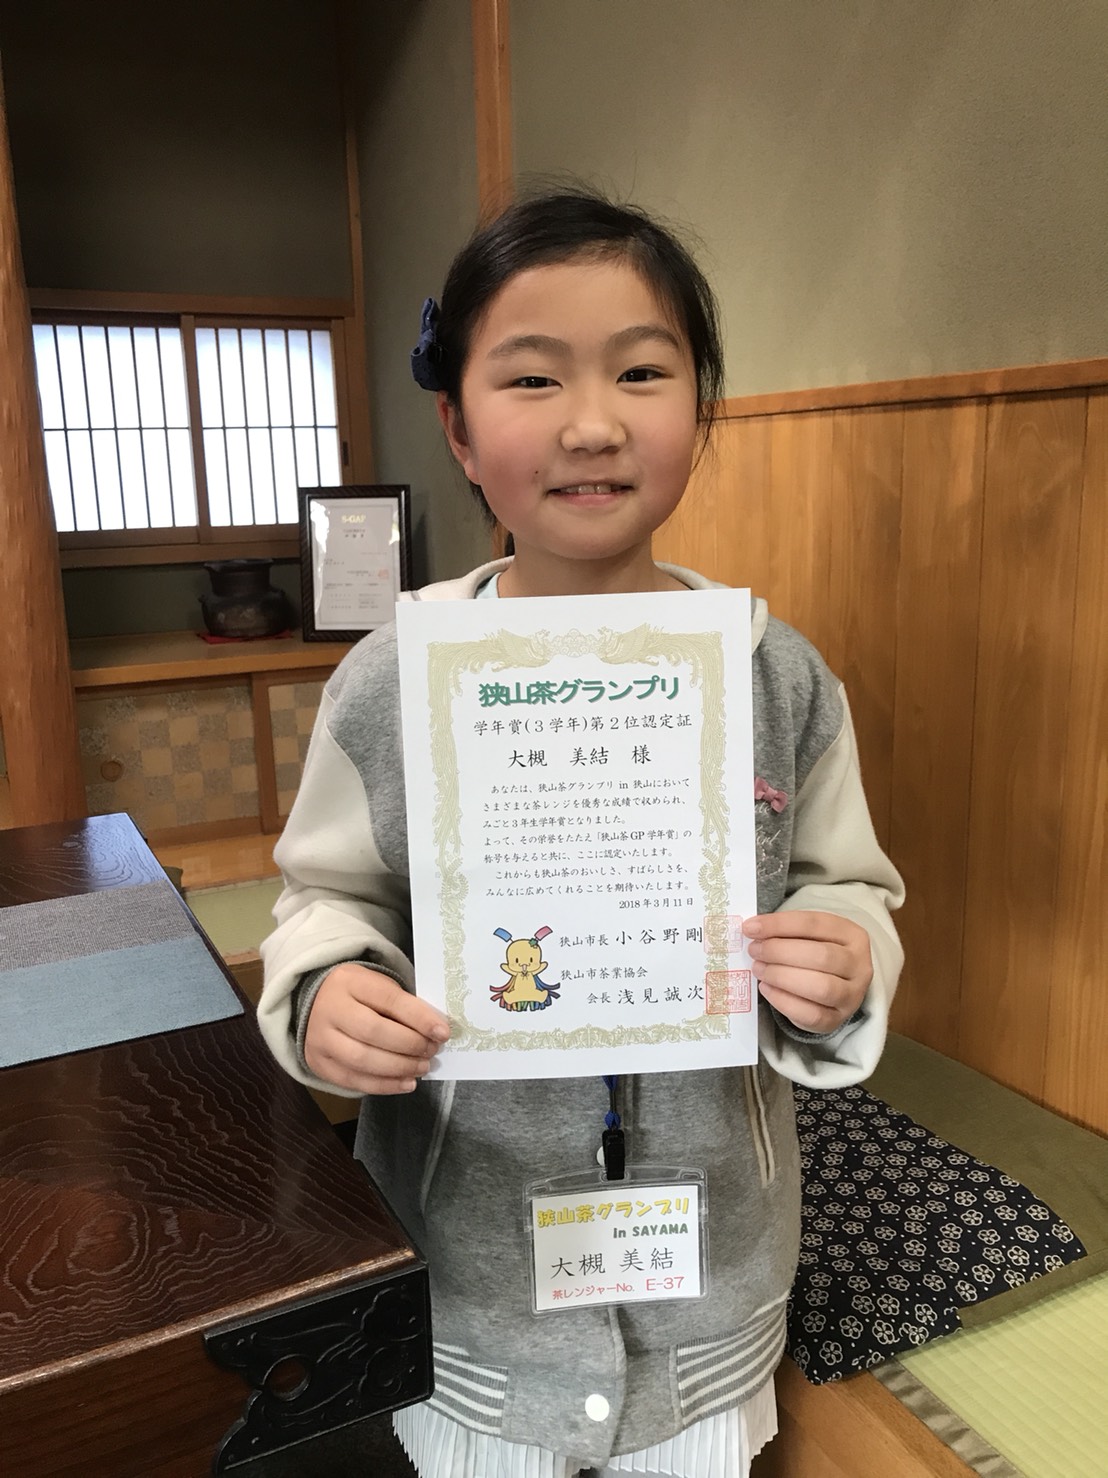 狭山茶グランプリ
学年賞(3学年)第2位認定証
大槻 美結 様
あなたは、狭山茶グランプリ in 狭山において
さまざまな茶レンジを優秀な成績で収められ、
みごと3年生学年賞となりました。
よって、その栄誉をたたえ「狭山茶GP学年賞」の
称号を与えると共に、ここに認定いたします。
これからも狭山茶のおいしさ、すばらしさを、
みんなに広めてくれることを期待いたします。
2018年3月11日
狭山市長 小谷野剛
狭山市茶業協会
会長 浅見誠次
狭山茶グランプリ
In SAYAMA
大槻 美結
茶レンジャーNo. E-37
S-GAP